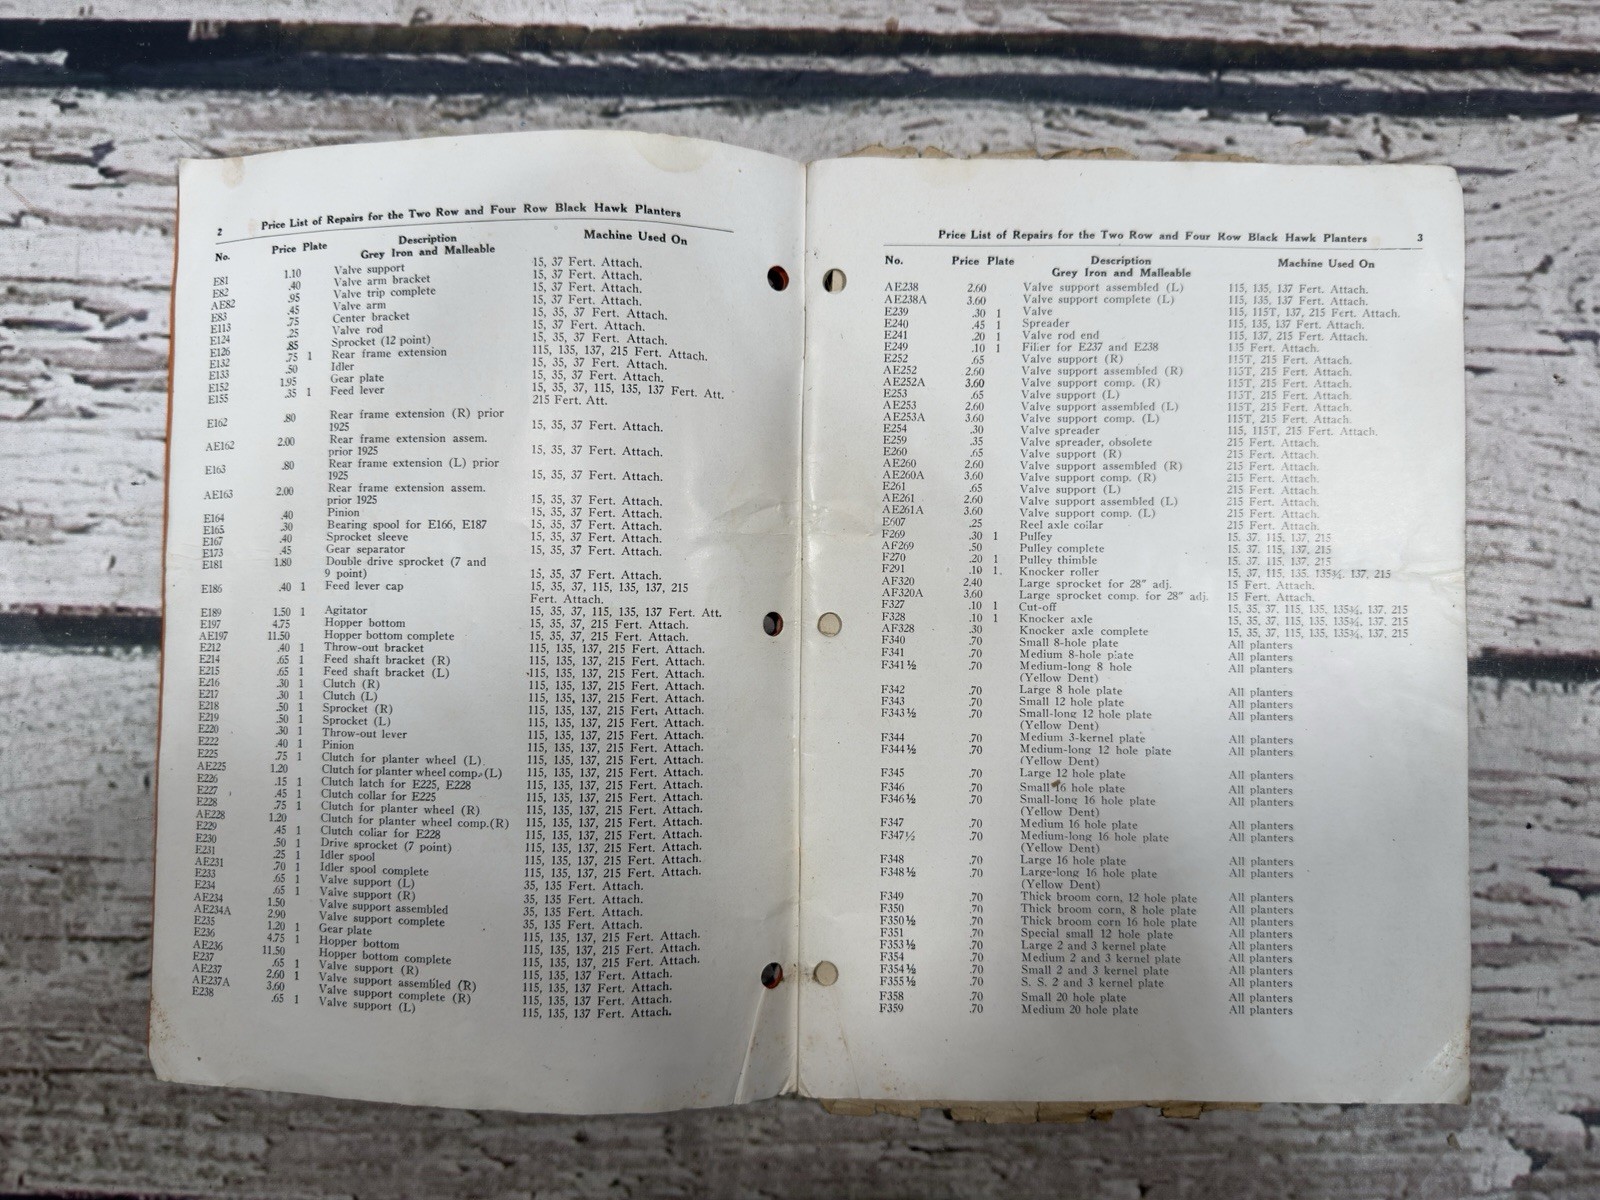 2 Price List of Repairs for the Two Row and Four Row Black Hawk Planters
No. Price Plate Description Machine Used On
Grey Iron and Malleable
E81 1.10 Valve support 15, 37 Fert. Attach.
E82 .40 Valve arm bracket 15, 37 Fert. Attach.
AE82 .95 Valve trip complete 15, 37 Fert. Attach.
E83 .45 Valve arm 15, 37 Fert. Attach.
E113 .75 Center bracket 15, 35, 37 Fert. Attach.
E124 .25 Valve rod 15, 37 Fert. Attach.
E126 .85 Sprocket (12 point) 15, 35, 37 Fert. Attach.
E132 .75 1 Rear frame extension 115, 135, 137, 215 Fert. Attach.
E133 .50 Idler 15, 35, 37 Fert. Attach.
E152 1.95 Gear plate 15, 35, 37 Fert. Attach.
E155 .35 1 Feed lever 15, 35, 37, 115, 135, 137 Fert. Att.
215 Fert. Att.
E162 .80 Rear frame extension (R) prior
1925 15, 35, 37 Fert. Attach.
AE162 2.00 Rear frame extension assem.
prior 1925 15, 35, 37 Fert. Attach.
E163 .80 Rear frame extension (L) prior
1925 15, 35, 37 Fert. Attach.
AE163 2.00 Rear frame extension assem.
prior 1925 15, 35, 37 Fert. Attach.
E164 .40 Pinion 15, 35, 37 Fert. Attach.
E165 .30 Bearing spool for E166, E187 15, 35, 37 Fert. Attach.
E167 .40 Sprocket sleeve 15, 35, 37 Fert. Attach.
E173 .45 Gear separator 15, 35, 37 Fert. Attach.
E181 1.80 Double drive sprocket (7 and
9 point) 15, 35, 37 Fert. Attach.
E186 .40 1 Feed lever cap 15, 35, 37, 115, 135, 137, 215
Fert. Attach.
E189 1.50 1 Agitator 15, 35, 37, 115, 135, 137 Fert. Att.
E197 4.75 Hopper bottom 15, 35, 37, 215 Fert. Attach.
AE197 11.50 Hopper bottom complete 15, 35, 37, 215 Fert. Attach.
E212 .40 1 Throw-out bracket 115, 135, 137, 215 Fert. Attach.
E214 .65 1 Feed shaft bracket (R) 115, 135, 137, 215 Fert. Attach.
E215 .65 1 Feed shaft bracket (L) 115, 135, 137, 215 Fert. Attach.
E216 .30 1 Clutch (R) 115, 135, 137, 215 Fert. Attach.
E217 .30 1 Clutch (L) 115, 135, 137, 215 Fert. Attach.
E218 .50 1 Sprocket (R) 115, 135, 137, 215 Fert. Attach.
E219 .50 1 Sprocket (L) 115, 135, 137, 215 Fert. Attach.
E220 .30 1 Throw-out lever 115, 135, 137, 215 Fert. Attach.
E222 .40 1 Pinion 115, 135, 137, 215 Fert. Attach.
E225 .75 1 Clutch for planter wheel (L) 115, 135, 137, 215 Fert. Attach.
AE225 1.20 Clutch for planter wheel comp. (L) 115, 135, 137, 215 Fert. Attach.
E226 .15 1 Clutch latch for E225, E228 115, 135, 137, 215 Fert. Attach.
E227 .45 1 Clutch collar for E225 115, 135, 137, 215 Fert. Attach.
E228 .75 1 Clutch for planter wheel (R) 115, 135, 137, 215 Fert. Attach.
AE228 1.20 Clutch for planter wheel comp.(R) 115, 135, 137, 215 Fert. Attach.
E229 .45 1 Clutch collar for E228 115, 135, 137, 215 Fert. Attach.
E230 .50 1 Drive sprocket (7 point) 115, 135, 137, 215 Fert. Attach.
E231 .25 1 Idler spool 115, 135, 137, 215 Fert. Attach.
AE231 .70 1 Idler spool complete 115, 135, 137, 215 Fert. Attach.
E233 .65 1 Valve support (L) 35, 135 Fert. Attach.
E234 .65 1 Valve support (R) 35, 135 Fert. Attach.
AE234 1.50 Valve support assembled 35, 135 Fert. Attach.
AE234A 2.90 Valve support complete 35, 135 Fert. Attach.
E235 1.20 1 Gear plate 115, 135, 137, 215 Fert. Attach.
E236 4.75 1 Hopper bottom 115, 135, 137, 215 Fert. Attach.
AE236 11.50 Hopper bottom complete 115, 135, 137, 215 Fert. Attach.
E237 .65 1 Valve support (R) 115, 135, 137 Fert. Attach.
AE237 2.60 1 Valve support assembled (R) 115, 135, 137 Fert. Attach.
AE237A 3.60 Valve support complete (R) 115, 135, 137 Fert. Attach.
E238 .65 1 Valve support (L) 115, 135, 137 Fert. Attach.
Price List of Repairs for the Two Row and Four Row Black Hawk Planters 3
No. Price Plate Description Machine Used On
Grey Iron and Malleable
AE238 2.60 Valve support assembled (L) 115, 135, 137 Fert. Attach.
AE238A 3.60 Valve support complete (L) 115, 135, 137 Fert. Attach.
E239 .30 1 Valve 115, 115T, 137, 215 Fert. Attach.
E240 .45 1 Spreader 115, 135, 137 Fert. Attach.
E241 .20 1 Valve rod end 115, 137, 215 Fert. Attach.
E249 .10 1 Filler for E237 and E238 135 Fert. Attach.
E252 .65 Valve support (R) 115T, 215 Fert. Attach.
AE252 2.60 Valve support assembled (R) 115T, 215 Fert. Attach.
AE252A 3.60 Valve support comp. (R) 115T, 215 Fert. Attach.
E253 .65 Valve support (L) 115T, 215 Fert. Attach.
AE253 2.60 Valve support assembled (L) 115T, 215 Fert. Attach.
AE253A 3.60 Valve support comp. (L) 115T, 215 Fert. Attach.
E254 .30 Valve spreader 115, 115T, 215 Fert. Attach.
E259 .35 Valve spreader, obsolete 215 Fert. Attach.
E260 .65 Valve support (R) 215 Fert. Attach.
AE260 2.60 Valve support assembled (R) 215 Fert. Attach.
AE260A 3.60 Valve support comp. (R) 215 Fert. Attach.
E261 .65 Valve support (L) 215 Fert. Attach.
AE261 2.60 Valve support assembled (L) 215 Fert. Attach.
AE261A 3.60 Valve support comp. (L) 215 Fert. Attach.
E607 .25 Reel axle collar 215 Fert. Attach.
F269 .30 1 Pulley 15, 37, 115, 137, 215
AF269 .50 Pulley complete 15, 37, 115, 137, 215
F270 .20 1 Pulley thimble 15, 37, 115, 137, 215
F291 .10 1. Knocker roller 15, 37, 115, 135, 135¾, 137, 215
AF320 2.40 Large sprocket for 28" adj. 15 Fert. Attach.
AF320A 3.60 Large sprocket comp. for 28" adj. 15 Fert. Attach.
F327 .10 1 Cut-off 15, 35, 37, 115, 135, 135¾, 137, 215
F328 .10 1 Knocker axle 15, 35, 37, 115, 135, 135¾, 137, 215
AF328 .30 Knocker axle complete 15, 35, 37, 115, 135, 135¾, 137, 215
F340 .70 Small 8-hole plate All planters
F341 .70 Medium 8-hole plate All planters
F341½ .70 Medium-long 8 hole All planters
(Yellow Dent)
F342 .70 Large 8 hole plate All planters
F343 .70 Small 12 hole plate All planters
F343½ .70 Small-long 12 hole plate All planters
(Yellow Dent)
F344 .70 Medium 3-kernel plate All planters
F344½ .70 Medium-long 12 hole plate All planters
(Yellow Dent)
F345 .70 Large 12 hole plate All planters
F346 .70 Small 16 hole plate All planters
F346½ .70 Small-long 16 hole plate All planters
(Yellow Dent)
F347 .70 Medium 16 hole plate All planters
F347½ .70 Medium-long 16 hole plate All planters
(Yellow Dent)
F348 .70 Large 16 hole plate All planters
F348½ .70 Large-long 16 hole plate All planters
(Yellow Dent)
F349 .70 Thick broom corn, 12 hole plate All planters
F350 .70 Thick broom corn, 8 hole plate All planters
F350½ .70 Thick broom corn 16 hole plate All planters
F351 .70 Special small 12 hole plate All planters
F353½ .70 Large 2 and 3 kernel plate All planters
F354 .70 Medium 2 and 3 kernel plate All planters
F354½ .70 Small 2 and 3 kernel plate All planters
F355½ .70 S. S. 2 and 3 kernel plate All planters
F358 .70 Small 20 hole plate All planters
F359 .70 Medium 20 hole plate All planters